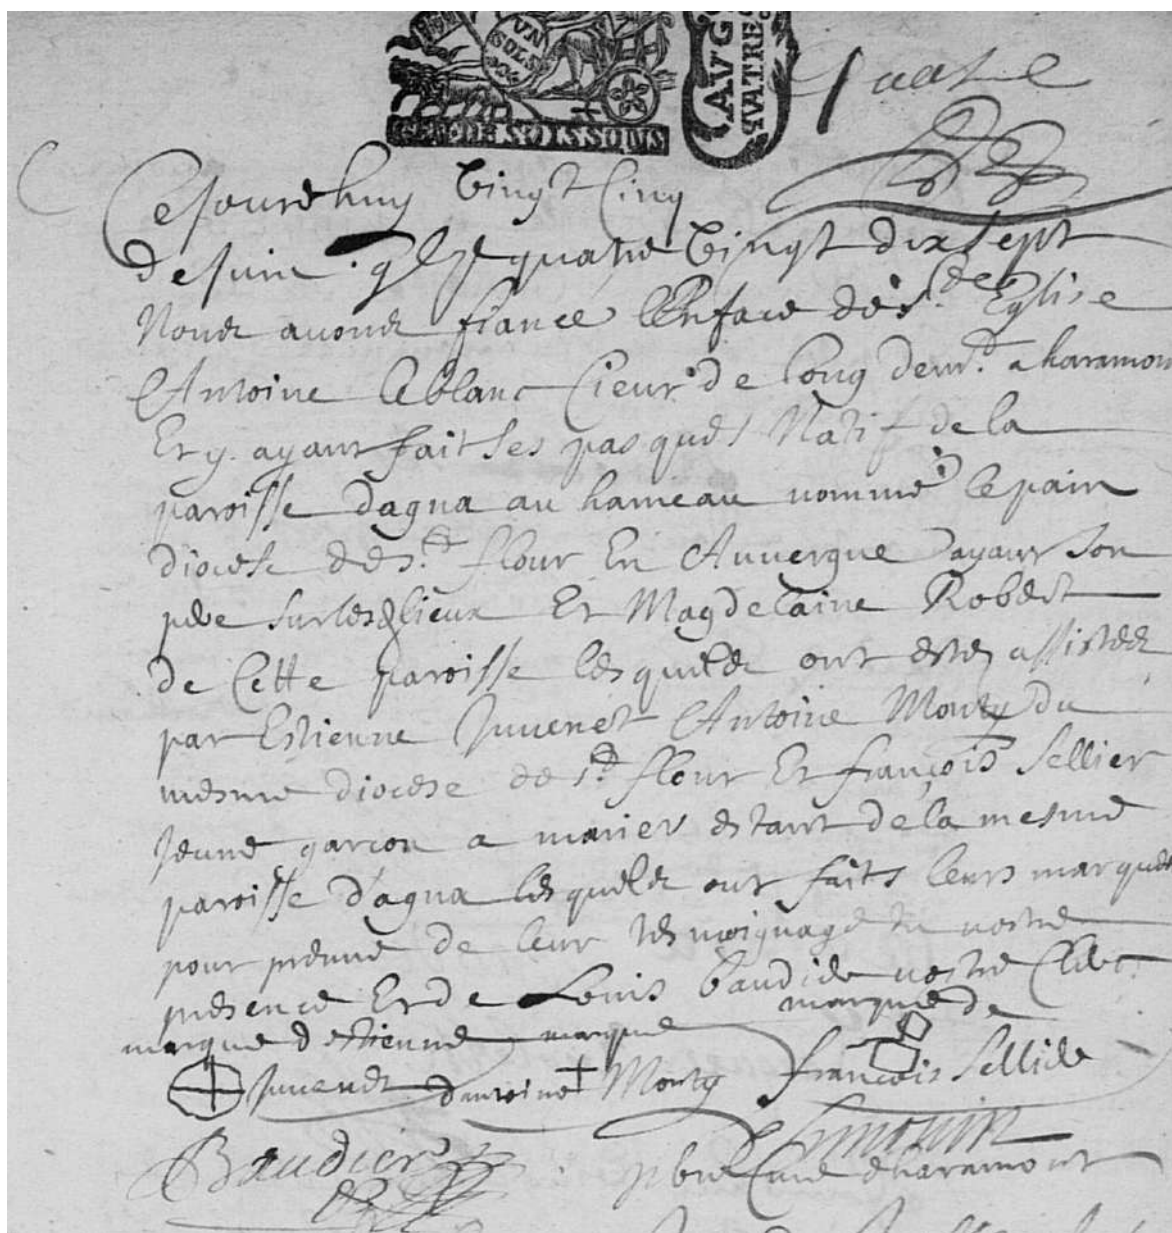 VN
SOLS
GEN DE SOISSONS
AVG
QVATRE
quatre
Cejourdhuy vingt Cinq
de juin quatre vingt dix sept
Nous avons fiancé En face de s.te Eglise
Antoine leblanc sieur de long dem.t a haramon
Et y ayant fait ses pasques Natif de la
paroisse dagna au hameau nommé le pain
diocese de s.t flour En Auvergne ayant son
pere sur les lieux Et Magdelaine Robert
de Cette paroisse lesquels ont estes assistez
par Estienne Juvenet Antoine Monty du
mesme diocese de s.t flour Et françois sellier
jeune garcon a marier estant de la mesme
paroisse dagna lesquels ont faits leurs marques
pour preuve de leur tesmoignage en nostre
presence Et de Louis baudier nostre Clerc
marque destienne marque marque de
Juvenet dantoine Monty françois sellier
Baudier
pbre Curé dharamont